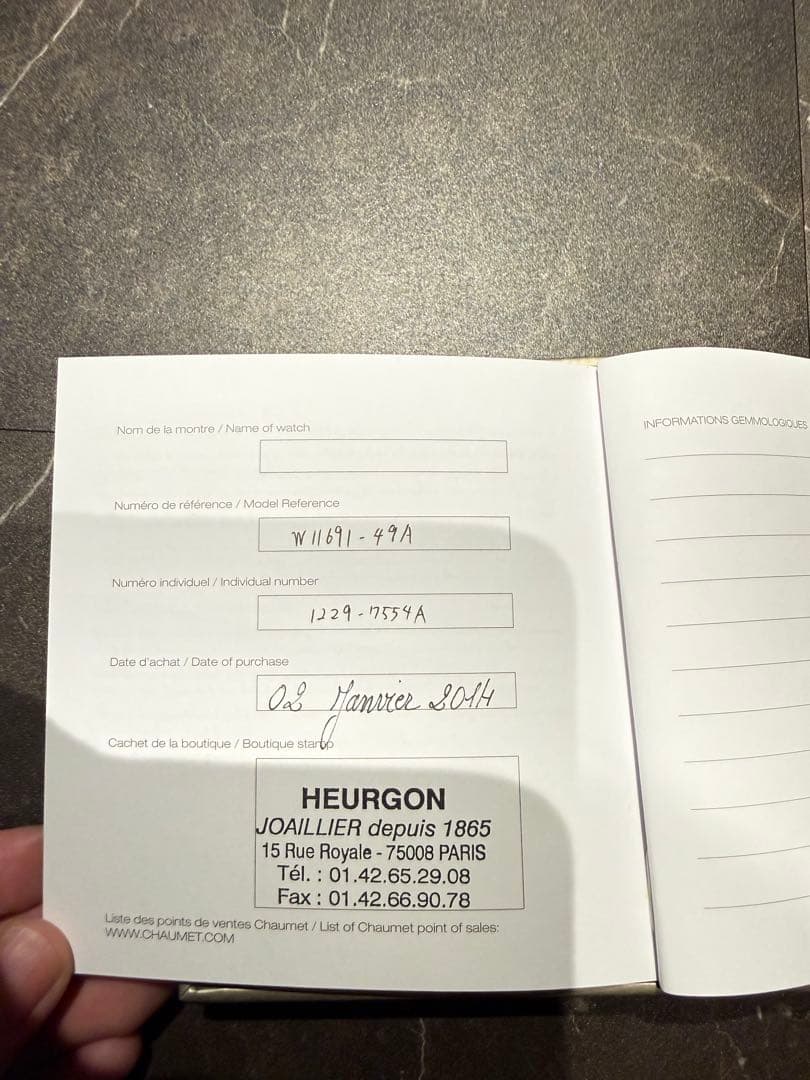 Nom de la montre / Name of watch
Numéro de référence / Model Reference
W11691-49A
Numéro individuel / Individual number
1229-7554A
Date d'achat / Date of purchase
02 Janvier 2014
Cachet de la boutique / Boutique stamp
HEURGON
JOAILLIER depuis 1865
15 Rue Royale - 75008 PARIS
Tél. : 01.42.65.29.08
Fax : 01.42.66.90.78
Liste des points de ventes Chaumet / List of Chaumet point of sales:
WWW.CHAUMET.COM
INFORMATIONS GEMMOLOGIQUES